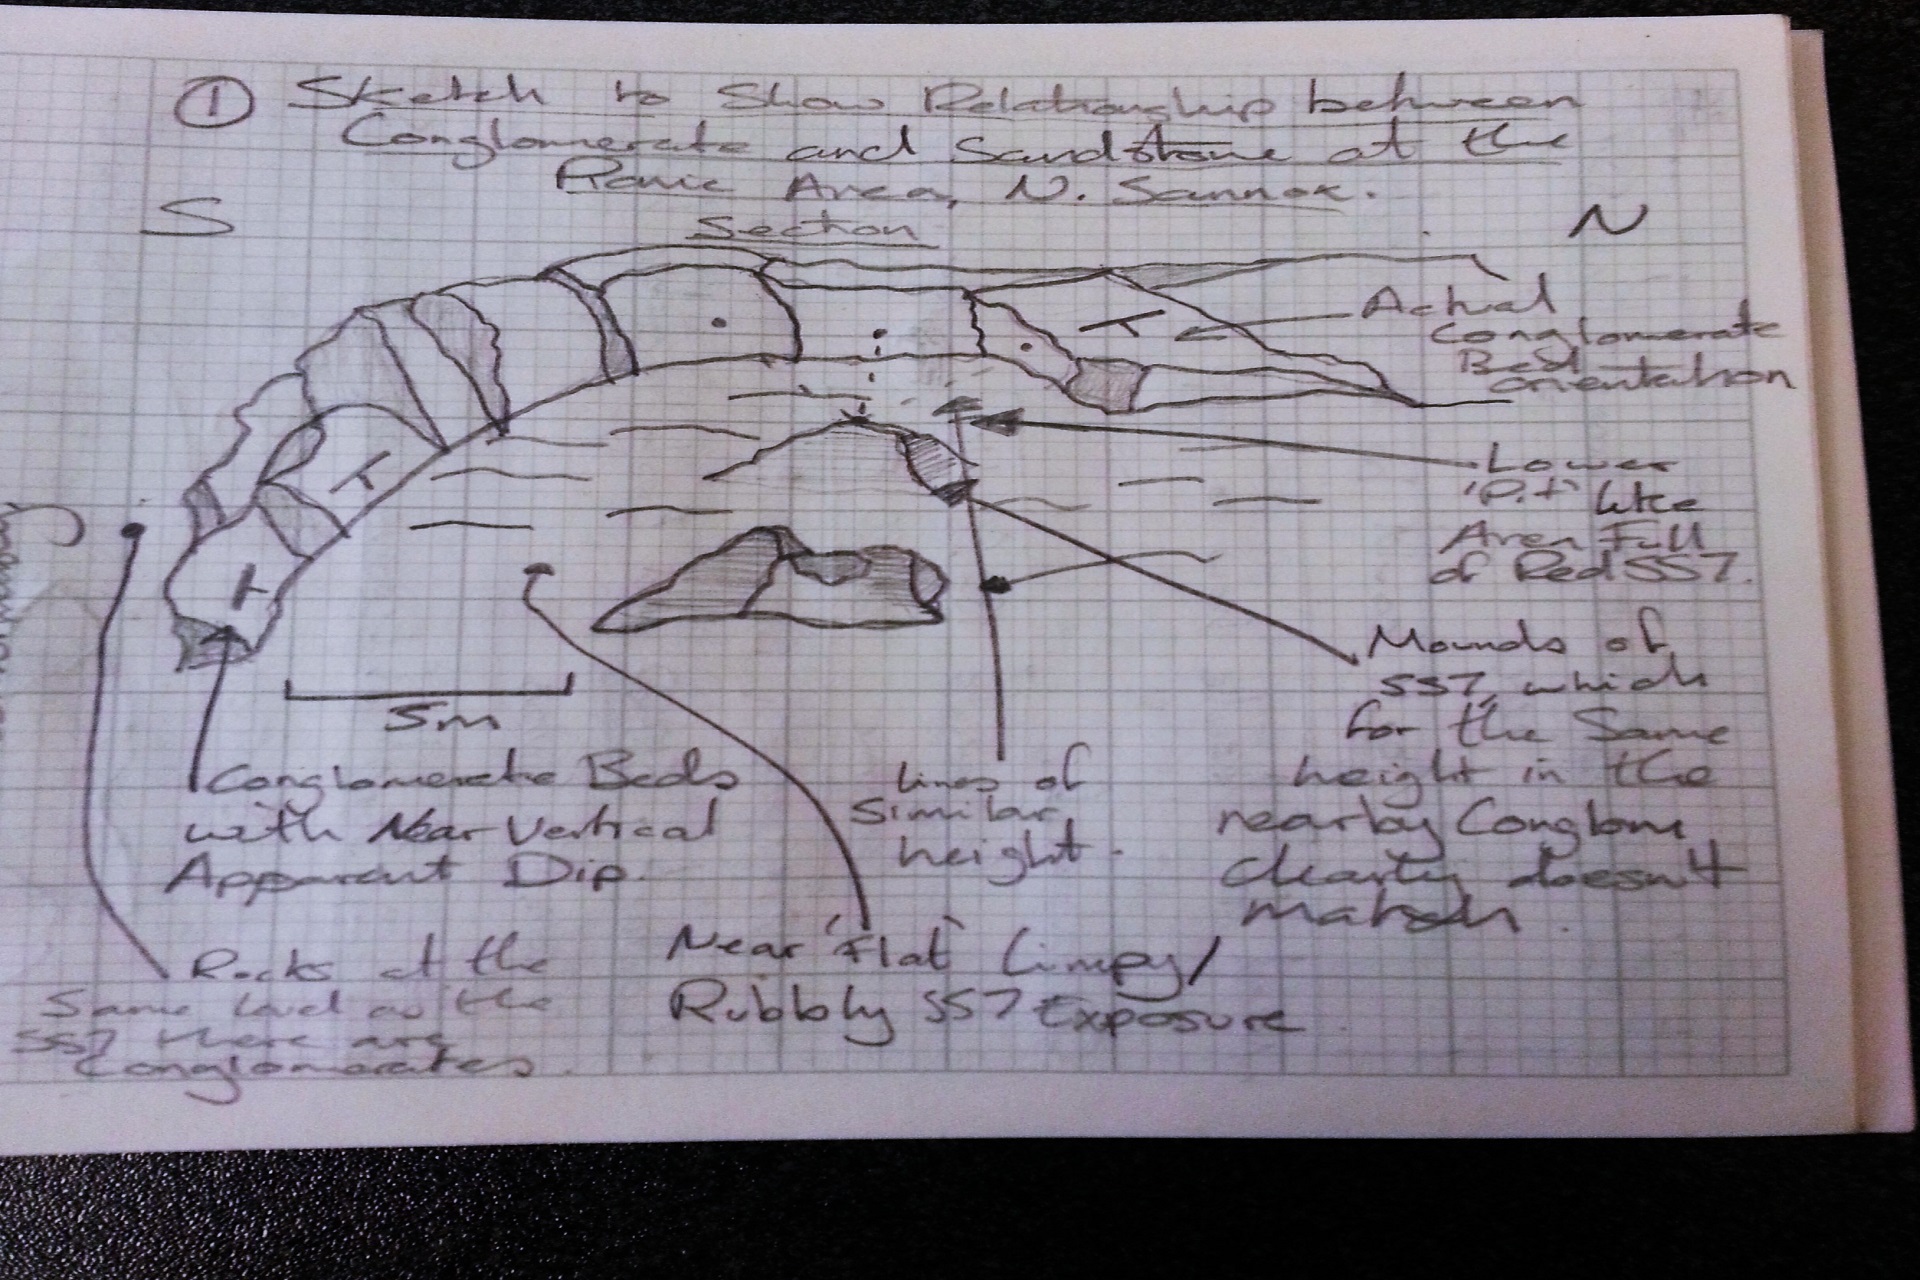 ① Sketch to Show Relationship between
Conglomerate and Sandstone at the
Area, N. Sannox.
Section
S
N
Actual
Conglomerate
Bed
orientation
Lower
'Pit' like
Area Full
of Red SST.
Mounds of
SST, which
for the Same
height in the
nearby Conglom
clearly doesn't
match.
5m
Conglomerate Beds
with Near Vertical
Apparent Dip.
lines of
Similar
height.
Rocks at the
Same level as the
SST there are
Conglomerates.
Near 'Flat'
Rubbly SST Exposure